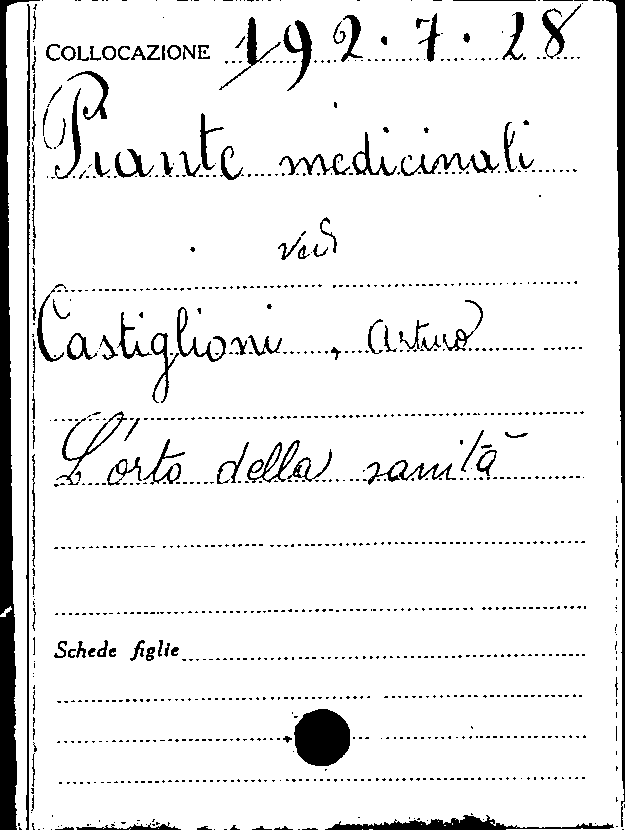 COLLOCAZIONE 192.7.28
Piante medicinali
vedi
Castiglioni, Arturo
L'orto della sanità
Schede figlie